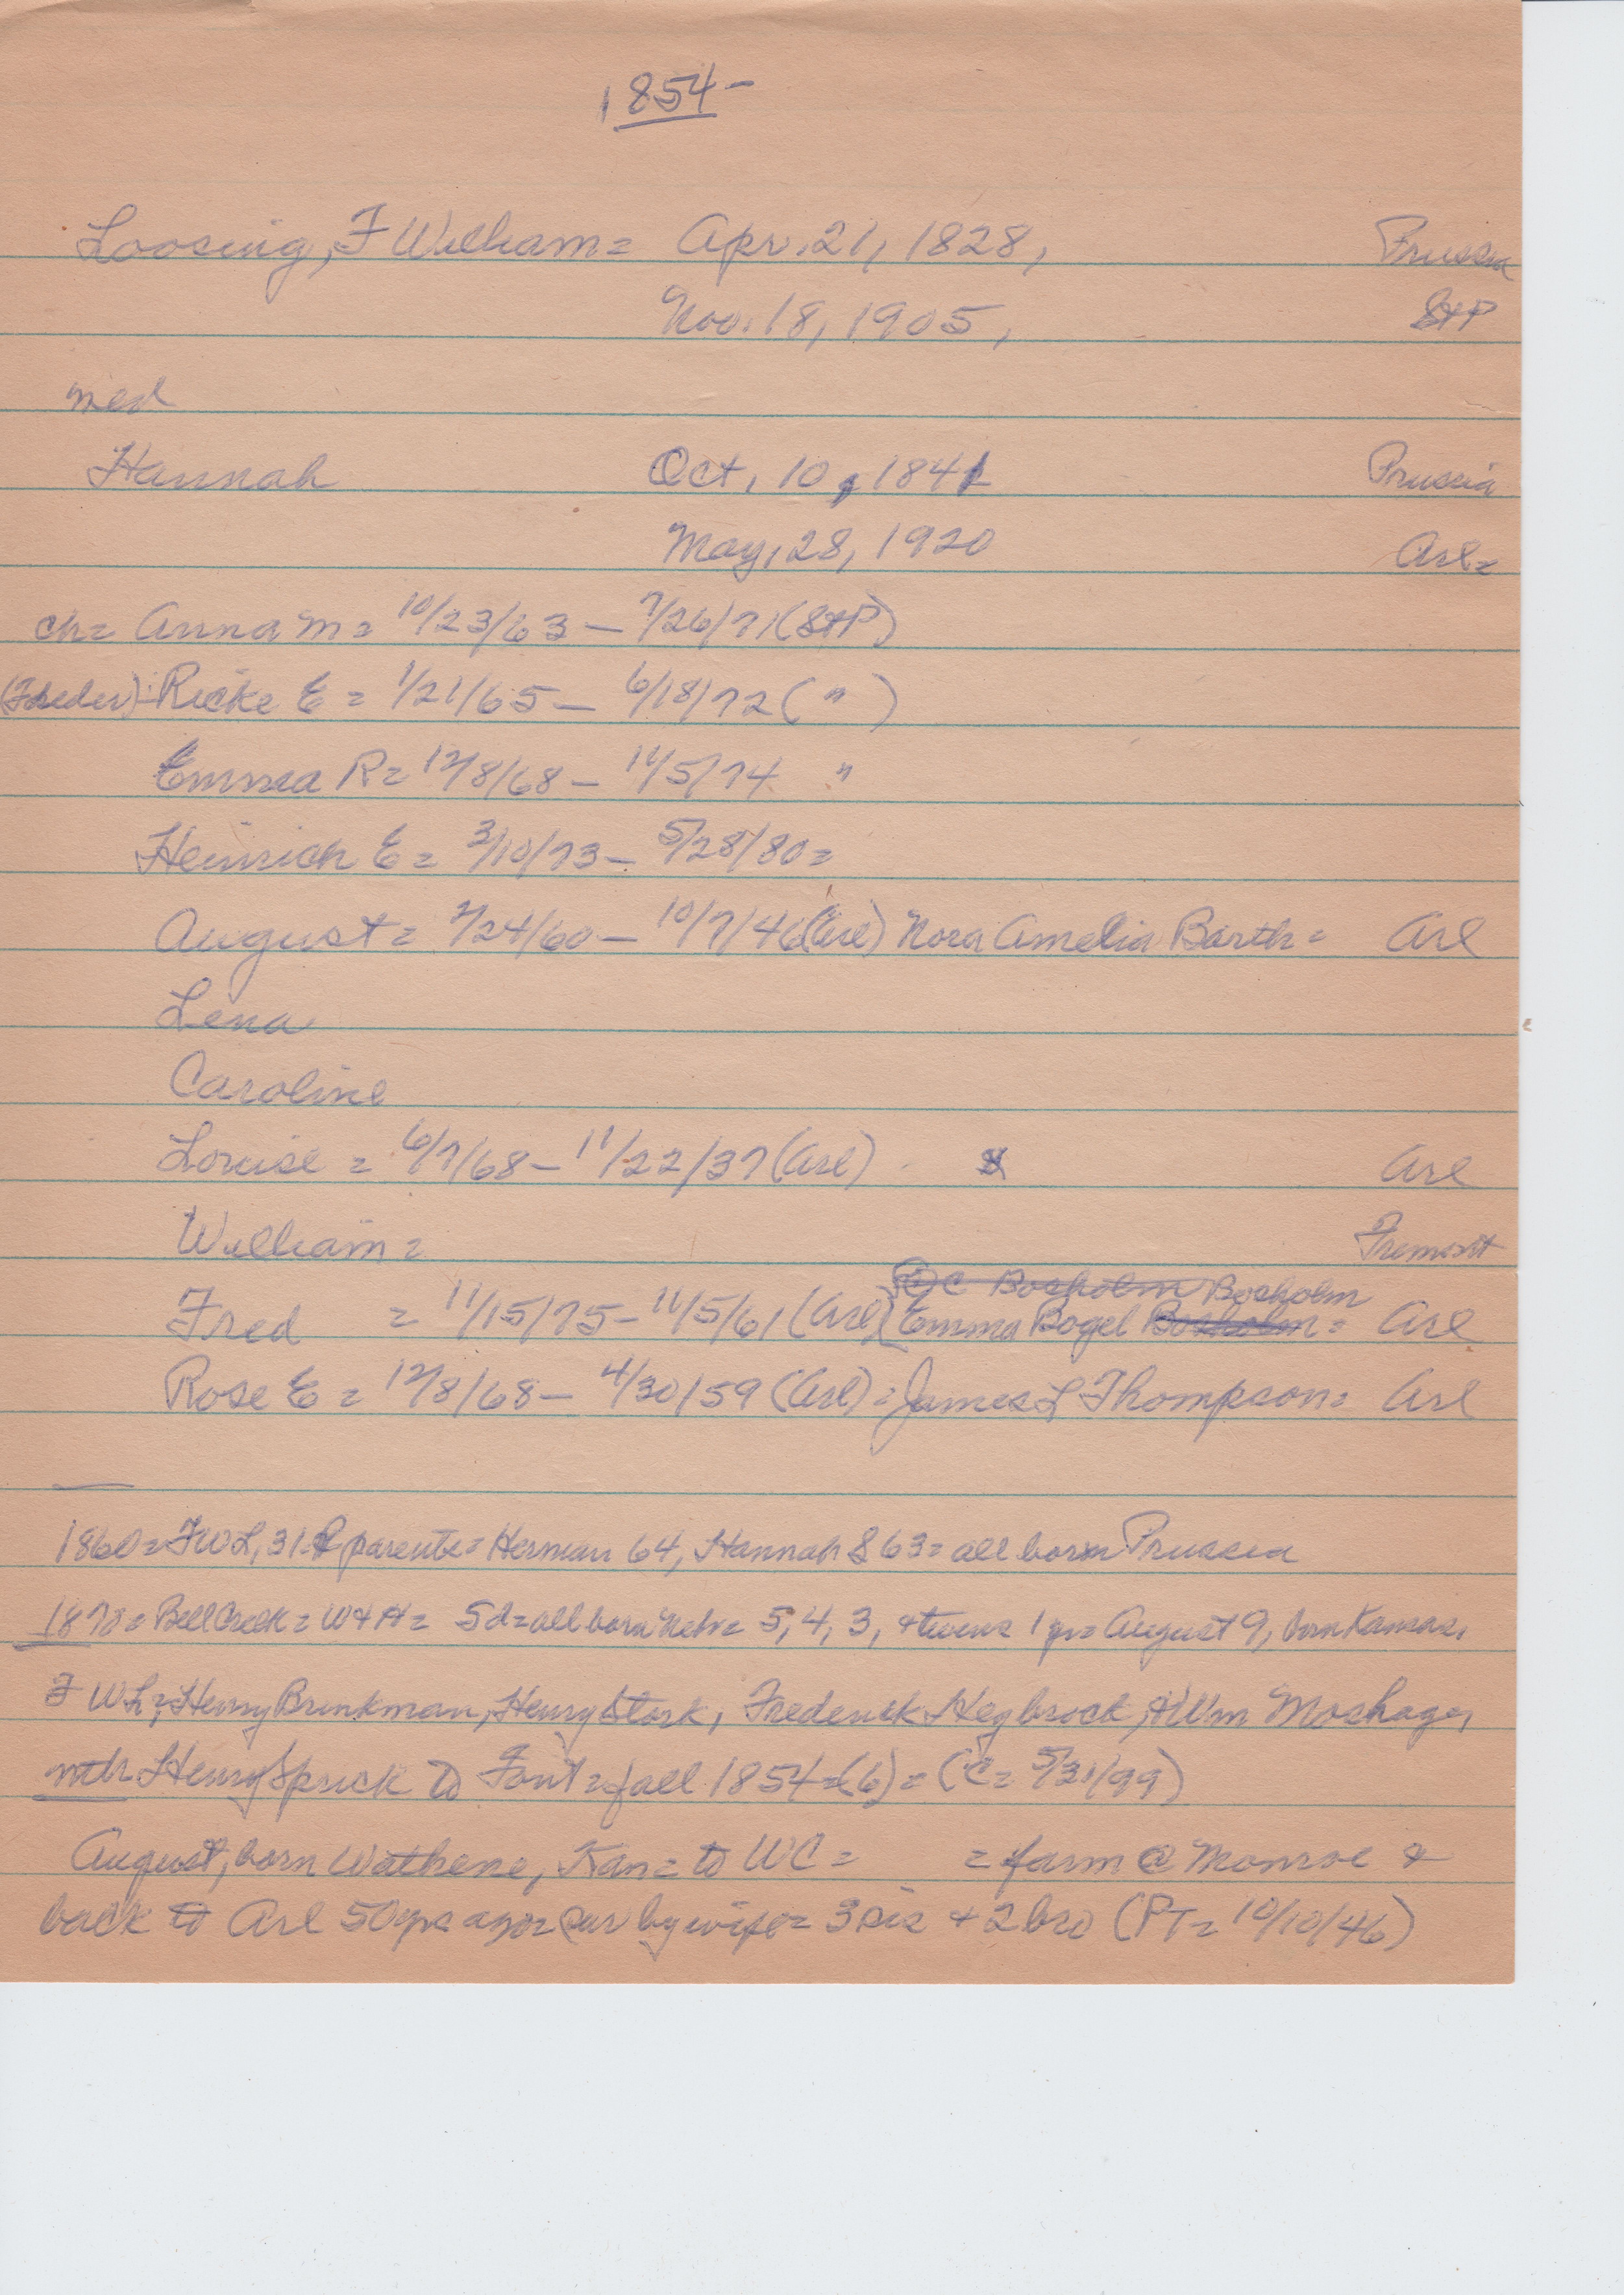 1854-
Loosing, F William = Apr. 21, 1828, Prussia
Nov. 18, 1905, StP
med
Hannah Oct, 10, 1841 Prussia
May, 28, 1920 Arl=
ch= Anna M= 10/23/63 - 7/26/71 (StP)
(Freder)-Ricke E = 1/21/65 - 6/18/72 ( " )
Emma R= 12/8/68 - 11/5/74 "
Heinrich E = 3/10/73 - 5/28/80 =
August = 2/24/60 - 10/7/46 (Arl) Nora Amelia Barth = Arl
Lena
Caroline
Louise = 6/7/68 - 11/22/37 (Arl) Arl
William = Fremont
C Bosholm Bosholm
Fred = 11/15/75 - 11/5/61 (Arl) Emma Bogel Bosholm = Arl
Rose E = 12/8/68 - 4/30/59 (Arl) = James L Thompson = Arl
1860 = FWL, 31 parents = Herman 64, Hannah S 63 = all born Prussia
1870 = Bell Creek = W + H = 5d = all born Nebr = 5, 4, 3, + twins 1 yr = August 9, born Kansas,
F WL, Henry Brinkman, Henry Stork, Frederick Hegbrock, + Wm Moshage,
with Henry Sprick to Font = fall 1854 = (6) = (C = 5/31/99)
August, born Wathene, Kan = to WC = = farm @ Monroe +
back to Arl 50 yrs ago = sur by wife = 3 sis + 2 bro (PT = 10/10/46)